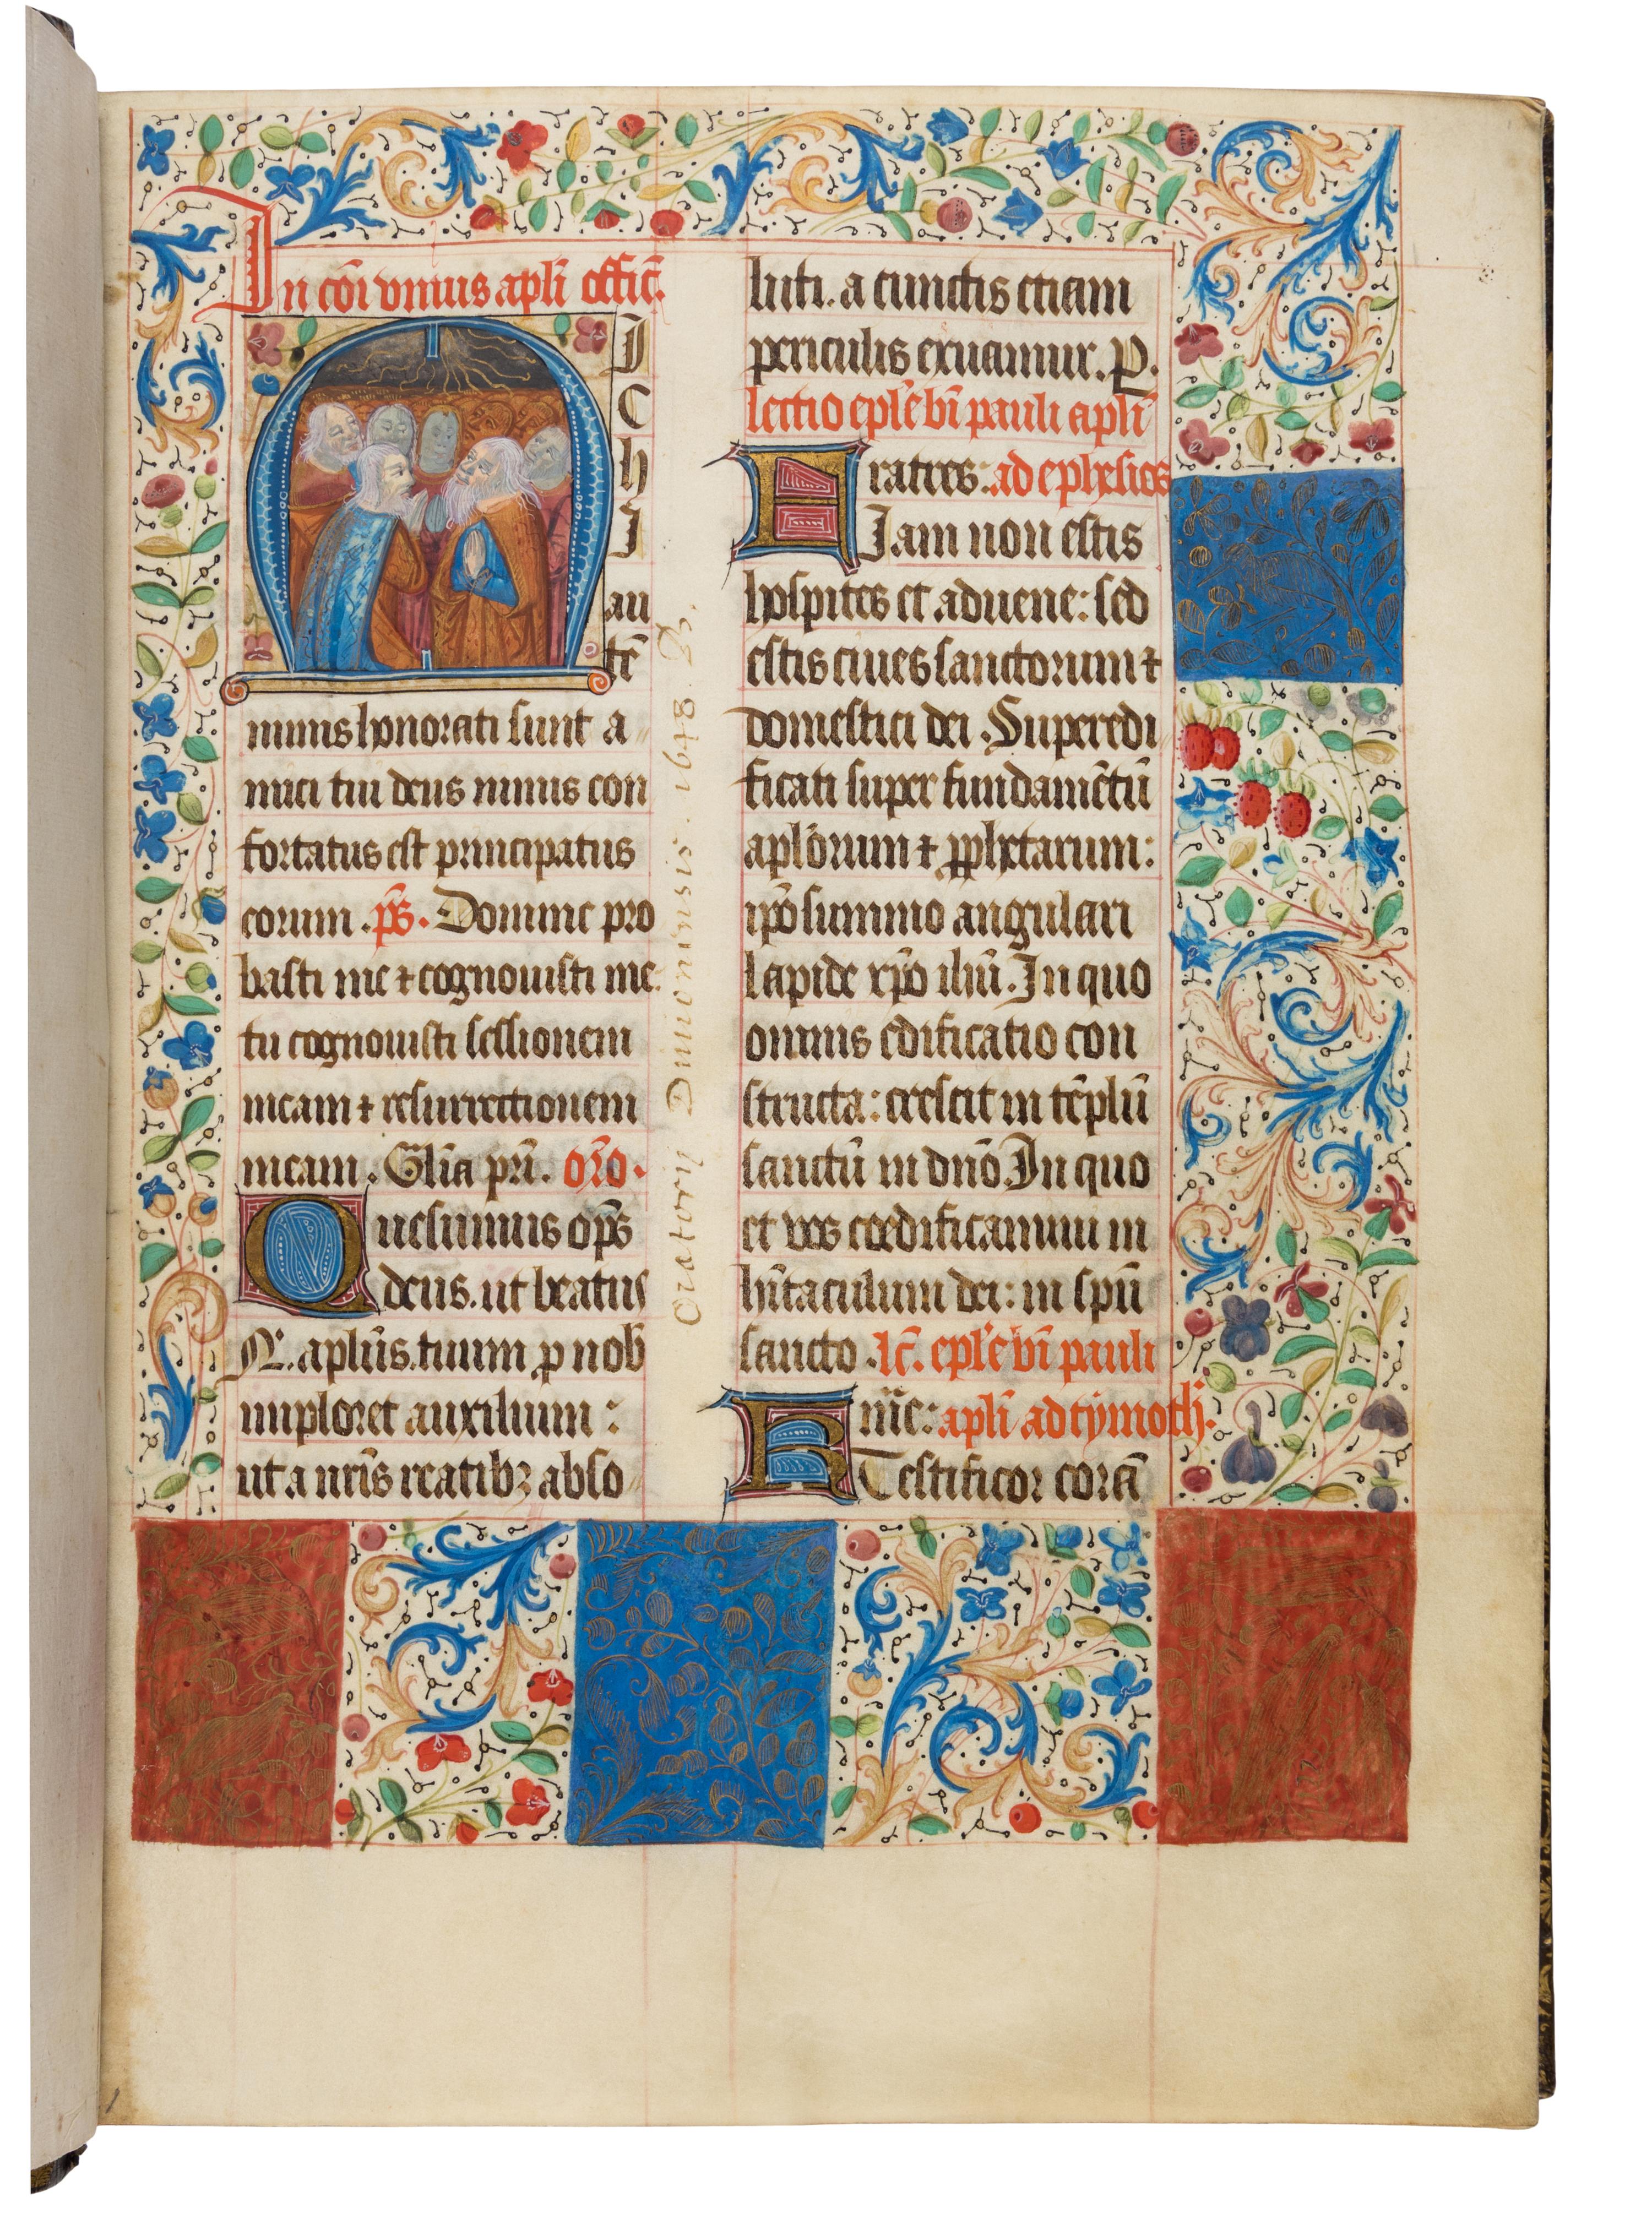 In cõi vnius apĺi offic̃.
MICHI
autē
nimis honorati sunt a
mici tui deus nimis con
fortatus est principatus
eorum. p̃s. Domine pro
basti me ⁊ cognouisti me.
tu cognouisti sessionem
meam ⁊ resurrectionem
meam. Gĺia pr̃i. or̃o.
Quesumus op̃s
deus. ut beatus
N. aplūs. tuum p nob̃
imploret auxilium:
ut a nr̃is reatibꝫ abso
luti. a cunctis etiam
periculis exuamur. P.
lectio epĺe bt̃i pauli apĺi
Fratres: ad ephesios
Iam non estis
hospites et aduene: sed
estis ciues sanctorum ⁊
domestici dei. Superedi
ficati super fundamētū
apĺorum ⁊ ꝓphetarum:
ip̃o summo angulari
lapide xp̃o ihū. In quo
omnis edificatio con
structa: crescit in tēplū
sanctū in dnō. In quo
et vos coedificamini in
hītaculum dei: in spū
sancto. lc̃. epĺe bt̃i pauli
Krm̃e: apĺi ad tymoth.
Testificor corā
Oratorij Diuionensis. 1648. B.